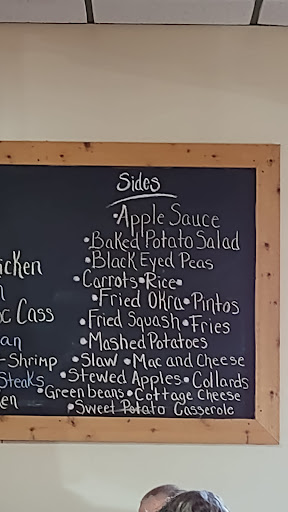 Sides
•Apple Sauce
•Baked Potato Salad
•Black Eyed Peas
•Carrots•Rice•
•Fried Okra•Pintos
•Fried Squash•Fries
•Mashed Potatoes
•Slaw •Mac and Cheese
•Stewed Apples•Collards
•Green beans•Cottage Cheese
•Sweet Potato Casserole
Cass
-Shrimp
Steaks